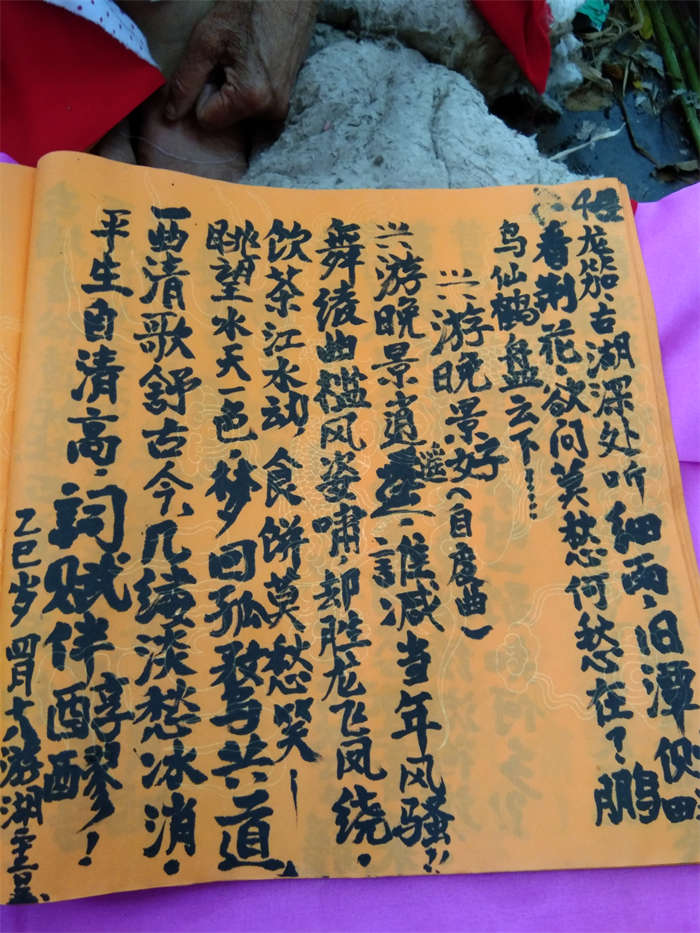 龙笳古湖深处听细雨，旧潭侧畔
看荆花，欲问莫愁何愁在？鹏
鸟仙鹤盘云下……
兴游晚景好（自度曲）
兴游晚景逍遥，谁减当年风骚！！
舞绫曲槛风姿啸，却胜龙飞凤绕。
饮茶江水动，食饼莫愁笑—
眺望水天一色，梦回孤敦与共道
一曲清歌舒古今，几缕淡愁冰消。
平生自清高，词赋伴酉酉享寥！
乙巳岁四月大游湖